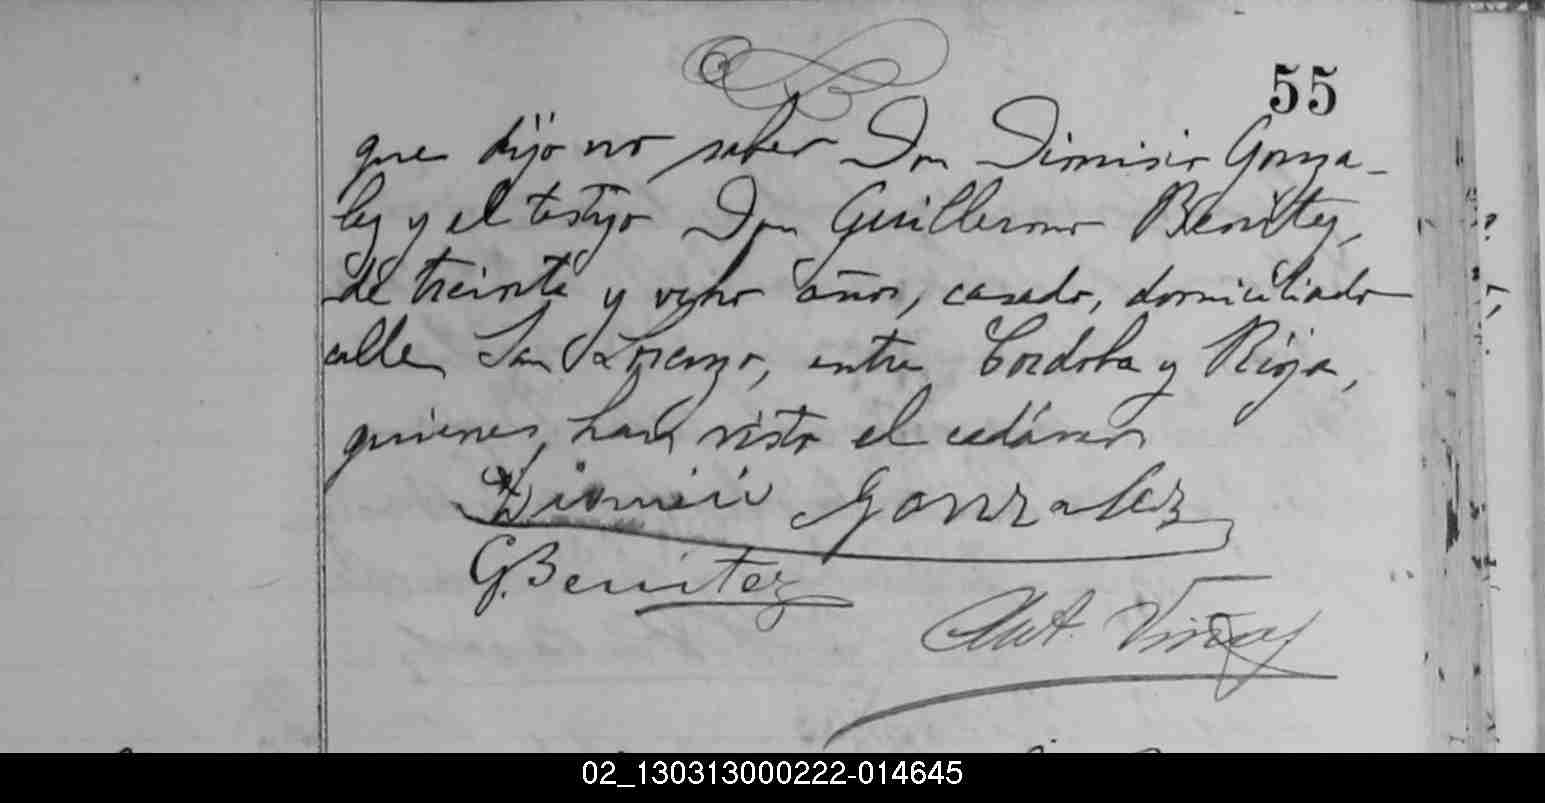 55
que dijo no saber Don Dionisio Gonza-
lez y el testigo Don Guillermo Benitez,
de treinta y ocho años, casado, domiciliado
calle San Lorenzo, entre Cordoba y Rioja,
quienes han visto el cadáver
Dionisio Gonzalez
G. Benitez
Ant.
02_130313000222-014645